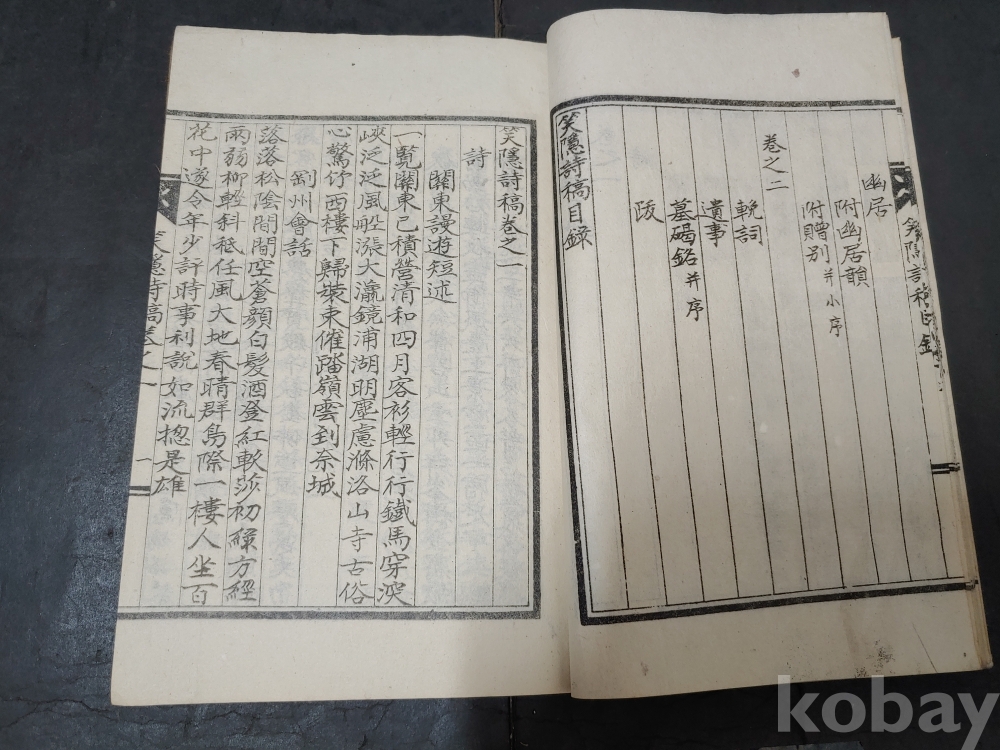 幽居
附幽居韻
附贈別 并小序
卷之二
輓詞
遺事
墓碣銘 并序
跋
笑隱詩稿目錄
笑隱詩稿卷之一
詩
關東謾遊短述
一覽關東已積營清和四月客衫輕行行鐵馬穿深
峽泛泛風船漲大瀛鏡浦湖明塵慮滌洛山寺古俗
心驚竹西樓下歸裝束催踏嶺雲到奈城
剛州會話
落落松陰間間空蒼顔白髮酒登紅軟莎初綠方經
雨弱柳輕斜秖任風大地春晴群鳥際一樓人坐百
花中遂令年少評時事利說如流摠是雄
笑隱詩稿卷之一
一
kobay